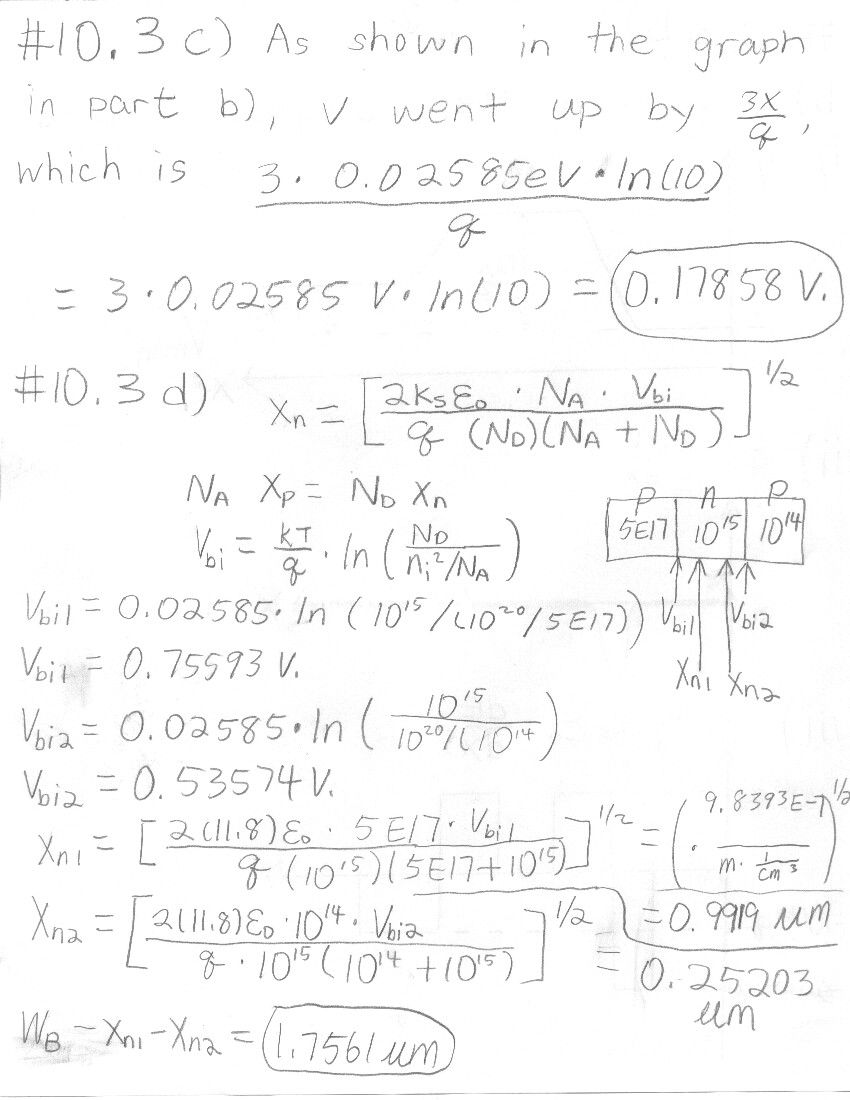 #10.3 c) As shown in the graph
in part b), V went up by 3x/q,
which is 3 · 0.02585eV · ln(10) / q
= 3 · 0.02585 V · ln(10) = 0.17858 V.
#10.3 d) Xn = [2KsƐ₀ · NA · Vbi / q (ND)(NA + ND)]^1/2
NA Xp = ND Xn
p n p
5E17 10^15 10^14
Vbi = kT/q · ln (ND / ni²/NA)
Vbi1 = 0.02585 · ln (10^15/(10^20/5E17))
Vbi1 Vbi2
Vbi1 = 0.75593 V.
Xn1 Xn2
Vbi2 = 0.02585 · ln (10^15 / 10^20/(10^14)
Vbi2 = 0.53574 V.
Xn1 = [2(11.8)Ɛ₀ · 5E17 · Vbi1 / q (10^15)(5E17+10^15)]^1/2 = (9.8393E-7 · / m · 1/cm³)^1/2
= 0.9919 um
Xn2 = [2(11.8)Ɛ₀ · 10^14 · Vbi2 / q · 10^15 (10^14 + 10^15)]^1/2 = 0.25203
um
WB - Xn1 - Xn2 = 1.7561 um